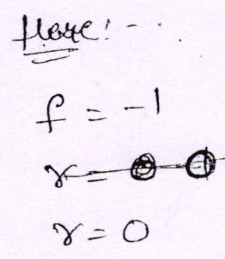 Here:-
f = -1
r = 0